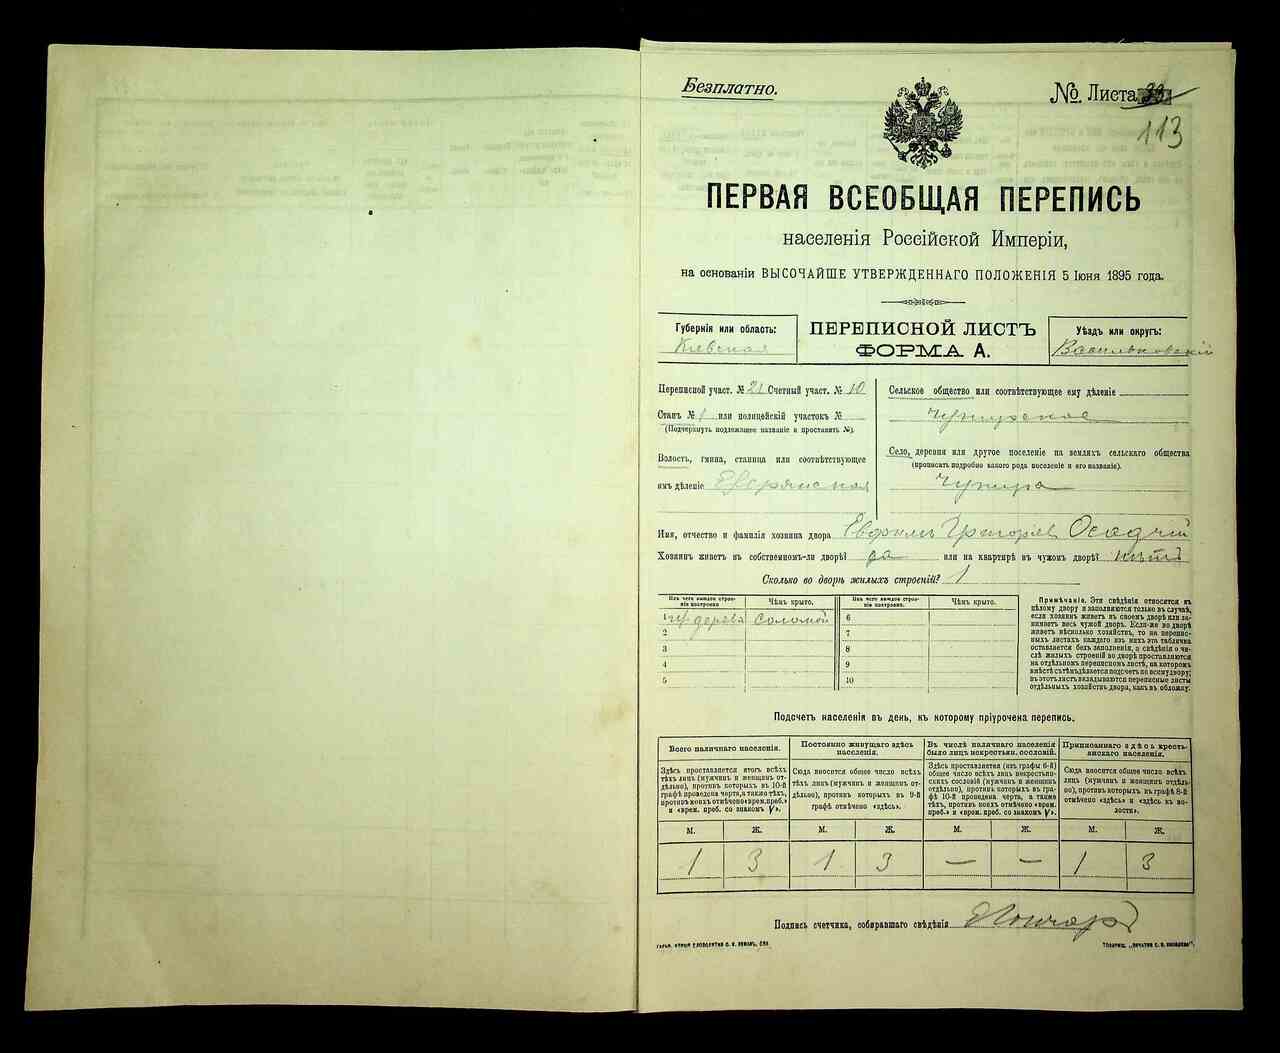 Безплатно.
№ Листа 33
113
ПЕРВАЯ ВСЕОБЩАЯ ПЕРЕПИСЬ
населенія Россійской Имперіи,
на основаніи ВЫСОЧАЙШЕ УТВЕРЖДЕННАГО ПОЛОЖЕНІЯ 5 Іюня 1895 года.
Губернія или область:
Кіевская
ПЕРЕПИСНОЙ ЛИСТЪ
ФОРМА А.
Уѣздъ или округъ:
Васильковскій
Переписной участ. № 21 Счетный участ. № 10
Станъ № 1 или полицейскій участокъ №
(Подчеркнуть подлежащее названіе и проставить №).
Волость, гмина, станица или соотвѣтствующее
имъ дѣленіе
Сельское общество или соотвѣтствующее ему дѣленіе
Чупирское
Село, деревня или другое поселеніе на земляхъ сельскаго общества
(прописать подробно какого рода поселеніе и его названіе).
Чупира
Имя, отчество и фамилія хозяина двора Евфимъ Григорьев Осадчій
Хозяинъ живетъ въ собственномъ-ли дворѣ? да или на квартирѣ въ чужомъ дворѣ? нѣтъ
Сколько во дворѣ жилыхъ строеній? 1
Изъ чего каждое строеніе построено.
Чѣмъ крыто.
Изъ чего каждое строеніе построено.
Чѣмъ крыто.
1 изъ дерева соломой 6
2 7
3 8
4 9
5 10
Примѣчаніе. Эти свѣдѣнія относятся къ
цѣлому двору и заполняются только въ случаѣ,
если хозяинъ живетъ въ своемъ дворѣ или за-
нимаетъ весь чужой дворъ. Если-же во дворѣ
живетъ нѣсколько хозяйствъ, то на перепис-
ныхъ листахъ каждаго изъ нихъ эта табличка
оставляется безъ заполненія, а свѣдѣнія о чи-
слѣ жилыхъ строеній во дворѣ проставляются
на отдѣльномъ переписномъ листѣ, на которомъ
вмѣстѣ съ тѣмъ дѣлается подсчетъ по всему двору;
въ этотъ листъ вкладываются переписные листы
отдѣльныхъ хозяйствъ двора, какъ въ обложку.
Подсчетъ населенія въ день, къ которому пріурочена перепись.
Всего наличнаго населенія.
Здѣсь проставляется итогъ всѣхъ
тѣхъ лицъ (мужчинъ и женщинъ от-
дѣльно), противъ которыхъ въ 10-й
графѣ проведена черта, а также тѣхъ,
противъ коихъ отмѣчено «врем. преб.»
и «врем. преб. со знакомъ V».
Постоянно живущаго здѣсь
населенія.
Сюда вносится общее число всѣхъ
тѣхъ лицъ (мужчинъ и женщинъ от-
дѣльно), противъ которыхъ въ 9-й
графѣ отмѣчено «здѣсь».
Въ числѣ наличнаго населенія
было лицъ некрестьян. сословій.
Здѣсь проставляется (изъ графы 6-й)
общее число всѣхъ лицъ некрестьян-
скихъ сословій (мужчинъ и женщинъ
отдѣльно), противъ которыхъ въ гра-
фѣ 10-й проведена черта, а также
тѣхъ, противъ коихъ отмѣчено «врем.
преб.» и «врем. преб. со знакомъ V».
Приписаннаго здѣсь кресть-
янскаго населенія.
Сюда вносится общее число всѣхъ
лицъ (мужчинъ и женщинъ отдѣль-
но), противъ которыхъ въ графѣ 8-й
отмѣчено «здѣсь» и «здѣсь къ во-
лости».
М. Ж. М. Ж. М. Ж. М. Ж.
1 3 1 3 — — 1 3
Подпись счетчика, собиравшаго свѣдѣнія